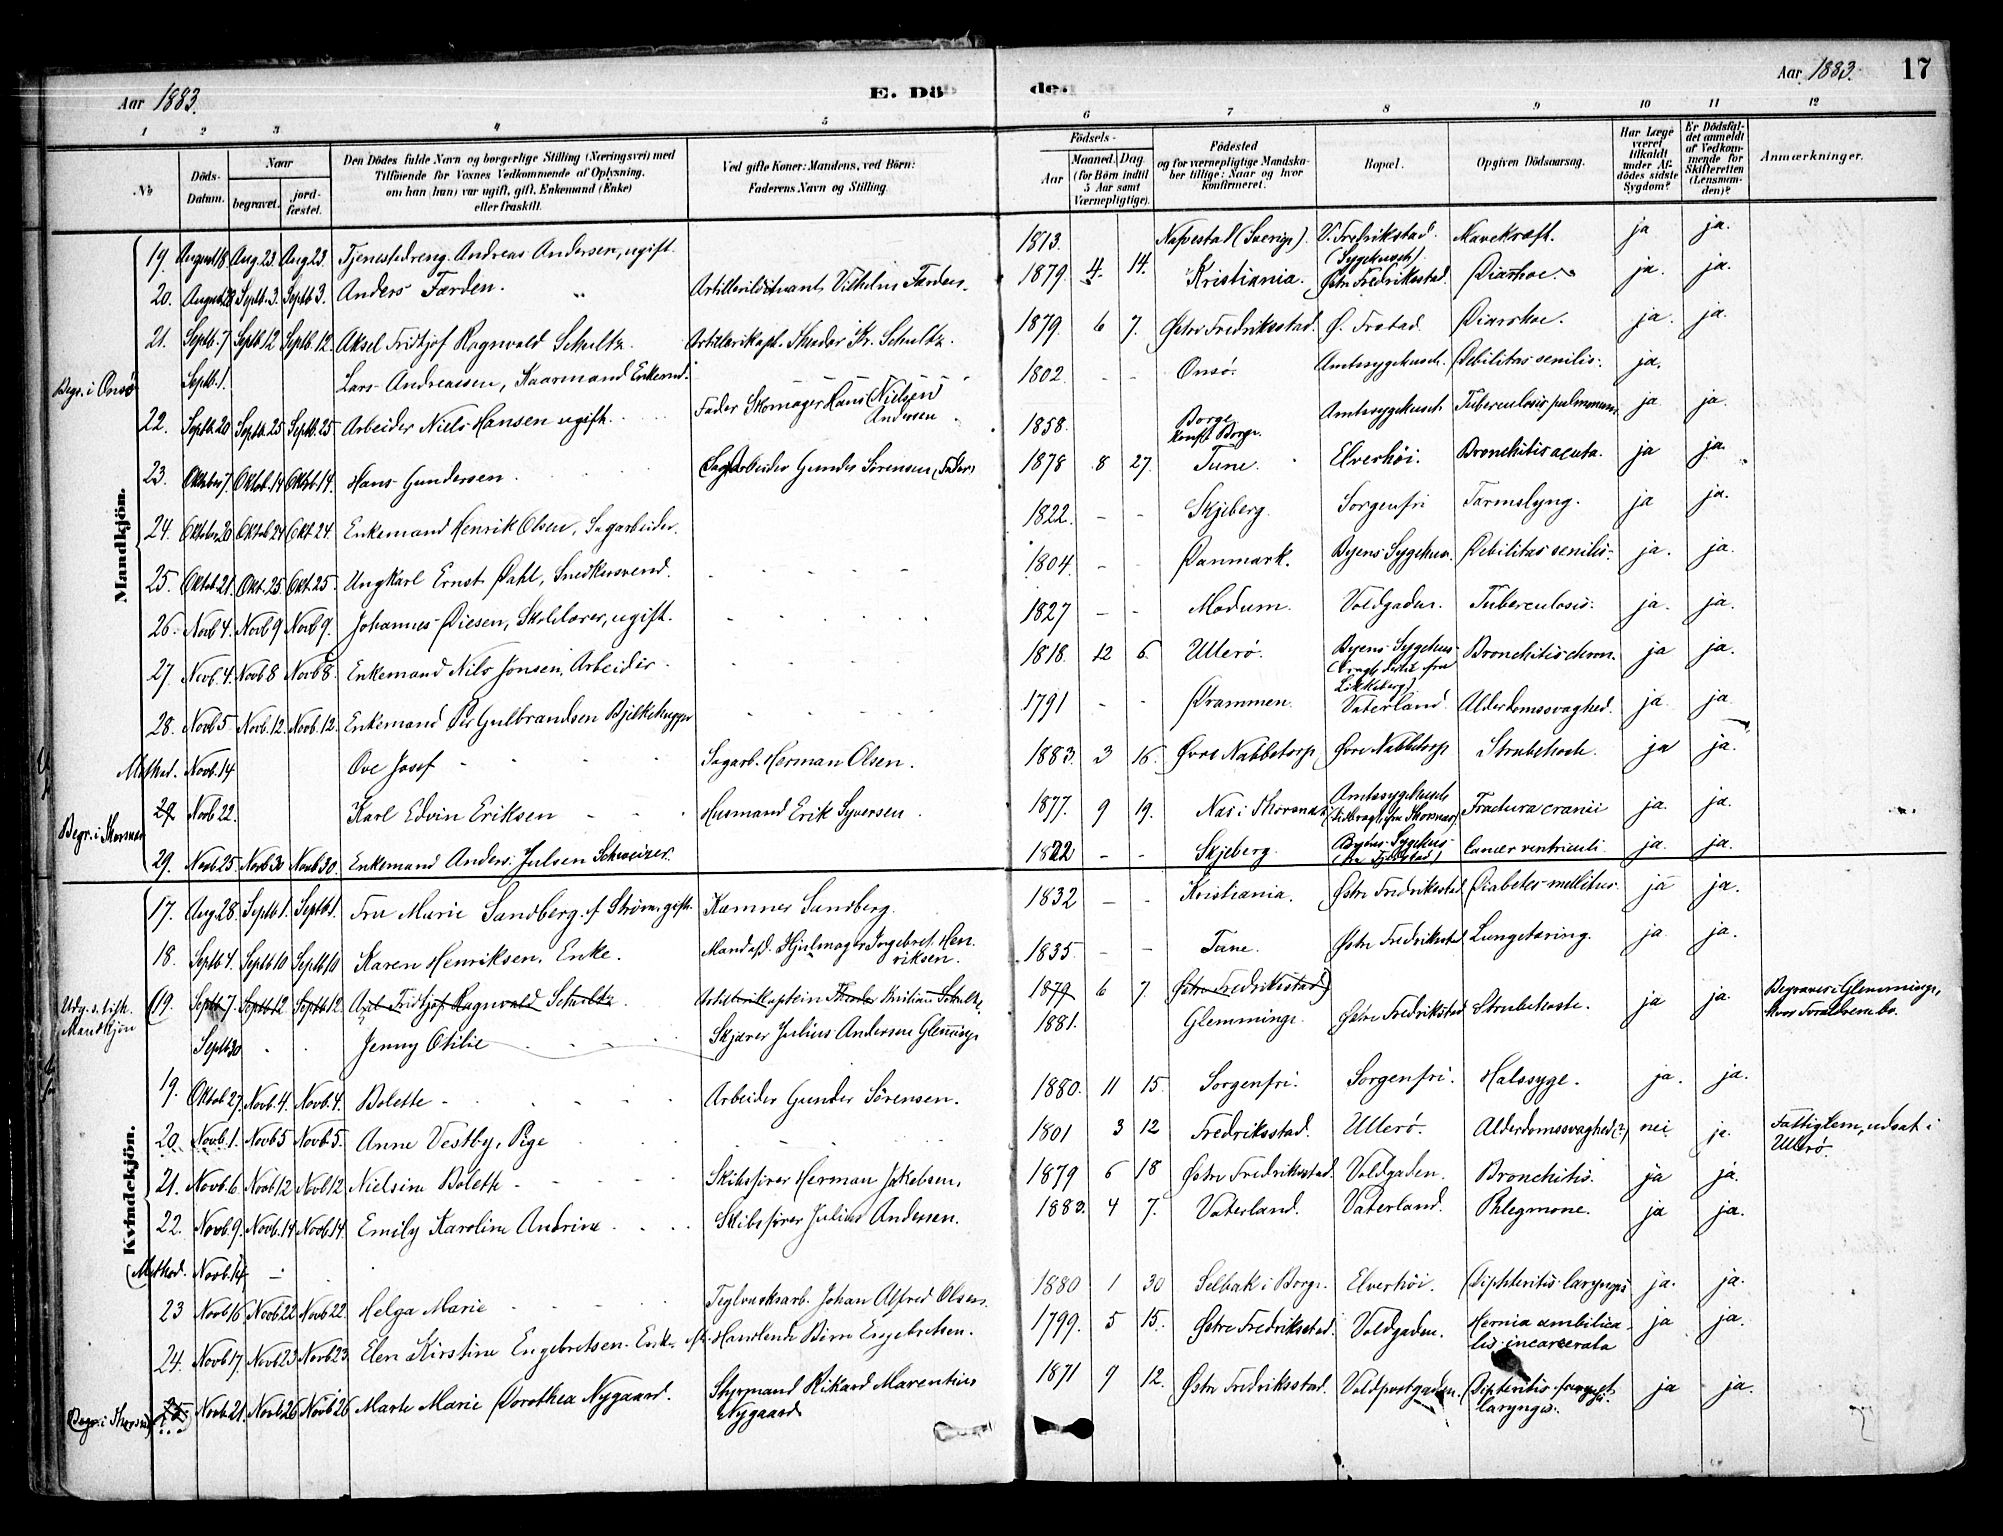 Aar 1883.
E. Dö
de.
Aar 1883.
17
1 2 3 4 5 6 7 8 9 10 11 12
No
Döds-Datum.
Naar
begravet.
jordfæstet.
Den Dödes fulde Navn og borgerlige Stilling (Næringsvei) med
Tilföiende for Voxnes Vedkommende af Oplysning,
om han (hun) var ugift, gift, Enkemand (Enke)
eller fraskilt.
Ved gifte Koner: Mandens, ved Börn:
Faderens Navn og Stilling.
Födsels-
Aar
Maaned. Dag.
(for Börn indtil
5 Aar samt
Værnepligtige).
Födested
og for værnepligtige Mandska-
ber tillige: Naar og hvor
konfirmeret.
Bopæl.
Opgiven Dödsaarsag.
Har Læge
været
tilkaldt
under Af-
dödes sidste
Sygdom?
Er Dödsfal-
det anmeldt
af Vedkom-
mende for
Skifteretten
(Lensman-
den)?
Anmærkninger.
Mandkjön.
19. August 18. Aug. 23. Aug 23. Tjenestedreng Andreas Andersen, ugift. 1813. (Sverige). V. Fredrikstad. (Sygehuset) Mavekræft. ja ja.
20. August 28 Septb. 3. Septb 3. Anders Færden. Vilhelm Færden. 1879. 4. 14. Kristiania. Østre Fredriksstad. Diarrhoe. ja. ja.
21. Septb. 7 Septb. 12 Septb. 12. Aksel Fridtjof Ragnvald Schultz. Artillerikapt. Theodor Kr. Schultz. 1879. 6 7. Østre Fredriksstad. Ø. Frstad. Diarrhoe. ja. ja.
Begr. i Onsö Septb. 1. Lars Andreassen, Kaarmand Enkemd. 1802. - - Onsö. Amtssygehuset. Debilitas senilis. ja.
22. Septb. 20 Septb. 25 Septb. 25 Arbeider Niels Hansen ugift. Fader Skomager Hans (Nielsen) Andersen 1858. Borge Konft. Borge. Amtssygehuset Tuberculosis pulmonum. ja ja.
23. Oktober 7. Oktob. 14 Oktob. 14. Hans Gundersen. Sagarbeider Gunder Sørensen (Fader) 1878 8 27. Tune. Elverhöi. Bronchitis acuta. ja ja.
24. Oktober 20 Oktob 24 Okt 24. Enkemand Henrik Olsen, Sagarbeider. 1822. - - Skjeberg. Sorgenfri Tarmslyng. ja ja.
25. Oktob. 21. Okt. 25. Okt. 25. Ungkarl Ernst Dahl, Snedkersvend. 1804. - - Danmark. Byens Sygehus. Debilitas senilis. ja. ja.
26. Novb 4. Novb 9 Novb 9. Johannes Diesen, Skolelærer, ugift. 1827 - - Modum. Voldgaden. Tuberculosis. ja. ja.
27. Novb. 4. Novb 8 Novb 8. Enkemand Nils Jonsen, Arbeider. 1818. 12 6. Ullerö. Byens Sygehus (bragt fra Bronchitis chron. ja ja.
28. Novb. 5 Novb. 12 Novb. 12. Enkemand Per Gulbrandsen Bjelkehugger 1791 - - Drammen. Vaterland. Alderdomssvaghed. ja ja
Methed. Novb. 14 Ove Josef Sagarb. Herman Olsen. 1883. 3 16. Øvre Nabbetorp Øvre Nabbetorp Strubehoste. ja ja.
Begr. i Thorsnes 29 Novb 22. Karl Edvin Eriksen Husmand Erik Syversen. 1877. 9 19. Næs i Thorsnæs Amtssygehuset (fra Thorsnæs) Fractura cranii ja ja.
29. Novb 25 Novb 30 Novb 30. Enkemand Anders Julsen Schweizer. 1822 - - Skjeberg. Byens Sygehus Cancer ventriculi ja. ja.
Kvindekjön.
17. Aug. 28. Septb 1. Septb 1. Fru Marie Sandberg f. Strøm, gift. Kæmner Sandberg. 1832 - - Kristiania. Østre Fredriksstad Diabetes mellitus. ja ja.
18. Septb 4. Septb 10 Septb 10 Karen Henriksen, Enke. Mand afd. Hjulmager Ingebret Henriksen. 1835. - - Tune. Østre Fredriksstad Lungetæring. ja ja.
Udg. s. tilh. Mandkjön (19. Septb 7. Septb 12 Septb 12. Axel Fridtjof Ragnvald Schultz. Artillerikaptein Theodor Kristian Schultz. 1879 6 7. Østre Fredriksstad)
Septb 30 Jenny Otilie Skjærer Julius Andersen Glemminge 1881. Glemminge. Østre Fredriksstad Strubehoste. ja ja. Begravet i Glemminge, hvor Forældrene bo.
19. Oktob 27. Novb. 4. Novb. 4. Bolette Arbeider Gunder Sørensen. 1880. 11 15. Sorgenfri. Sorgenfri. Halssyge. ja. ja.
20. Novb. 1. Novb 5 Novb. 5. Anne Vestby, Pige 1801 3 12 Fredriksstad. Ullerö. Alderdomssvaghed (?) nei ja. Fattiglem, udsat i Ullerö.
21. Novb. 6 Novb 12 Novb 12 Nielsine Bolette Skibsfører Herman Jakobsen. 1879 6 18 Østre Fredriksstad. Voldgaden. Bronchitis. ja ja.
22. Novb. 9. Novb. 14 Novb. 14. Emily Karoline Andrine Skibsfører Julius Andersen. 1883. 4 7. Vaterland. Vaterland. Phlegmone. ja ja.
(Methed. Novb. 14
23 Novb 16 Novb. 22 Novb 22 Helga Marie Teglværksarb. Johan Alfred Olsen. 1880 1 30 Selbak i Borge. Elverhöi. Diphteritis laryngis ja. ja.
24. Novb 17. Novb 23 Novb 23. Elen Kirstine Engebretsen. Enke. Børre Engebretsen. 1799. 5 15. Østre Fredriksstad. Voldgaden. Hernia umbilicalis incarcerata ja ja.
(Begr. i Thorsnæs) 25 Novb. 21. Novb. 26 Novb. 26 Marte Marie Dorothea Nygaard. Styrmand Rikard Marentius Nygaard 1871 9 12. Østre Fredriksstad. Voldportgaden. Diphteritis laryngis. ja ja.